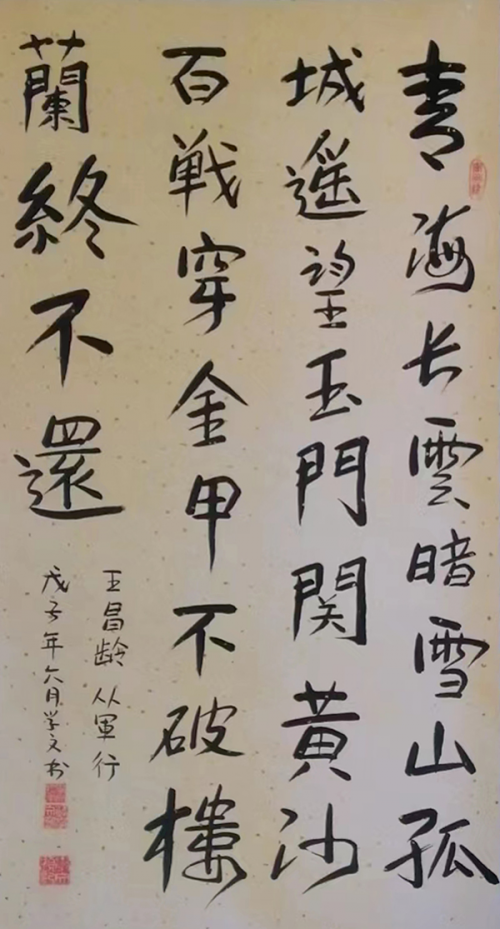 青海长雲暗雪山孤
城遥望玉門関黄沙
百戦穿金甲不破樓
蘭終不還
王昌龄从军行
戊子年六月学文书